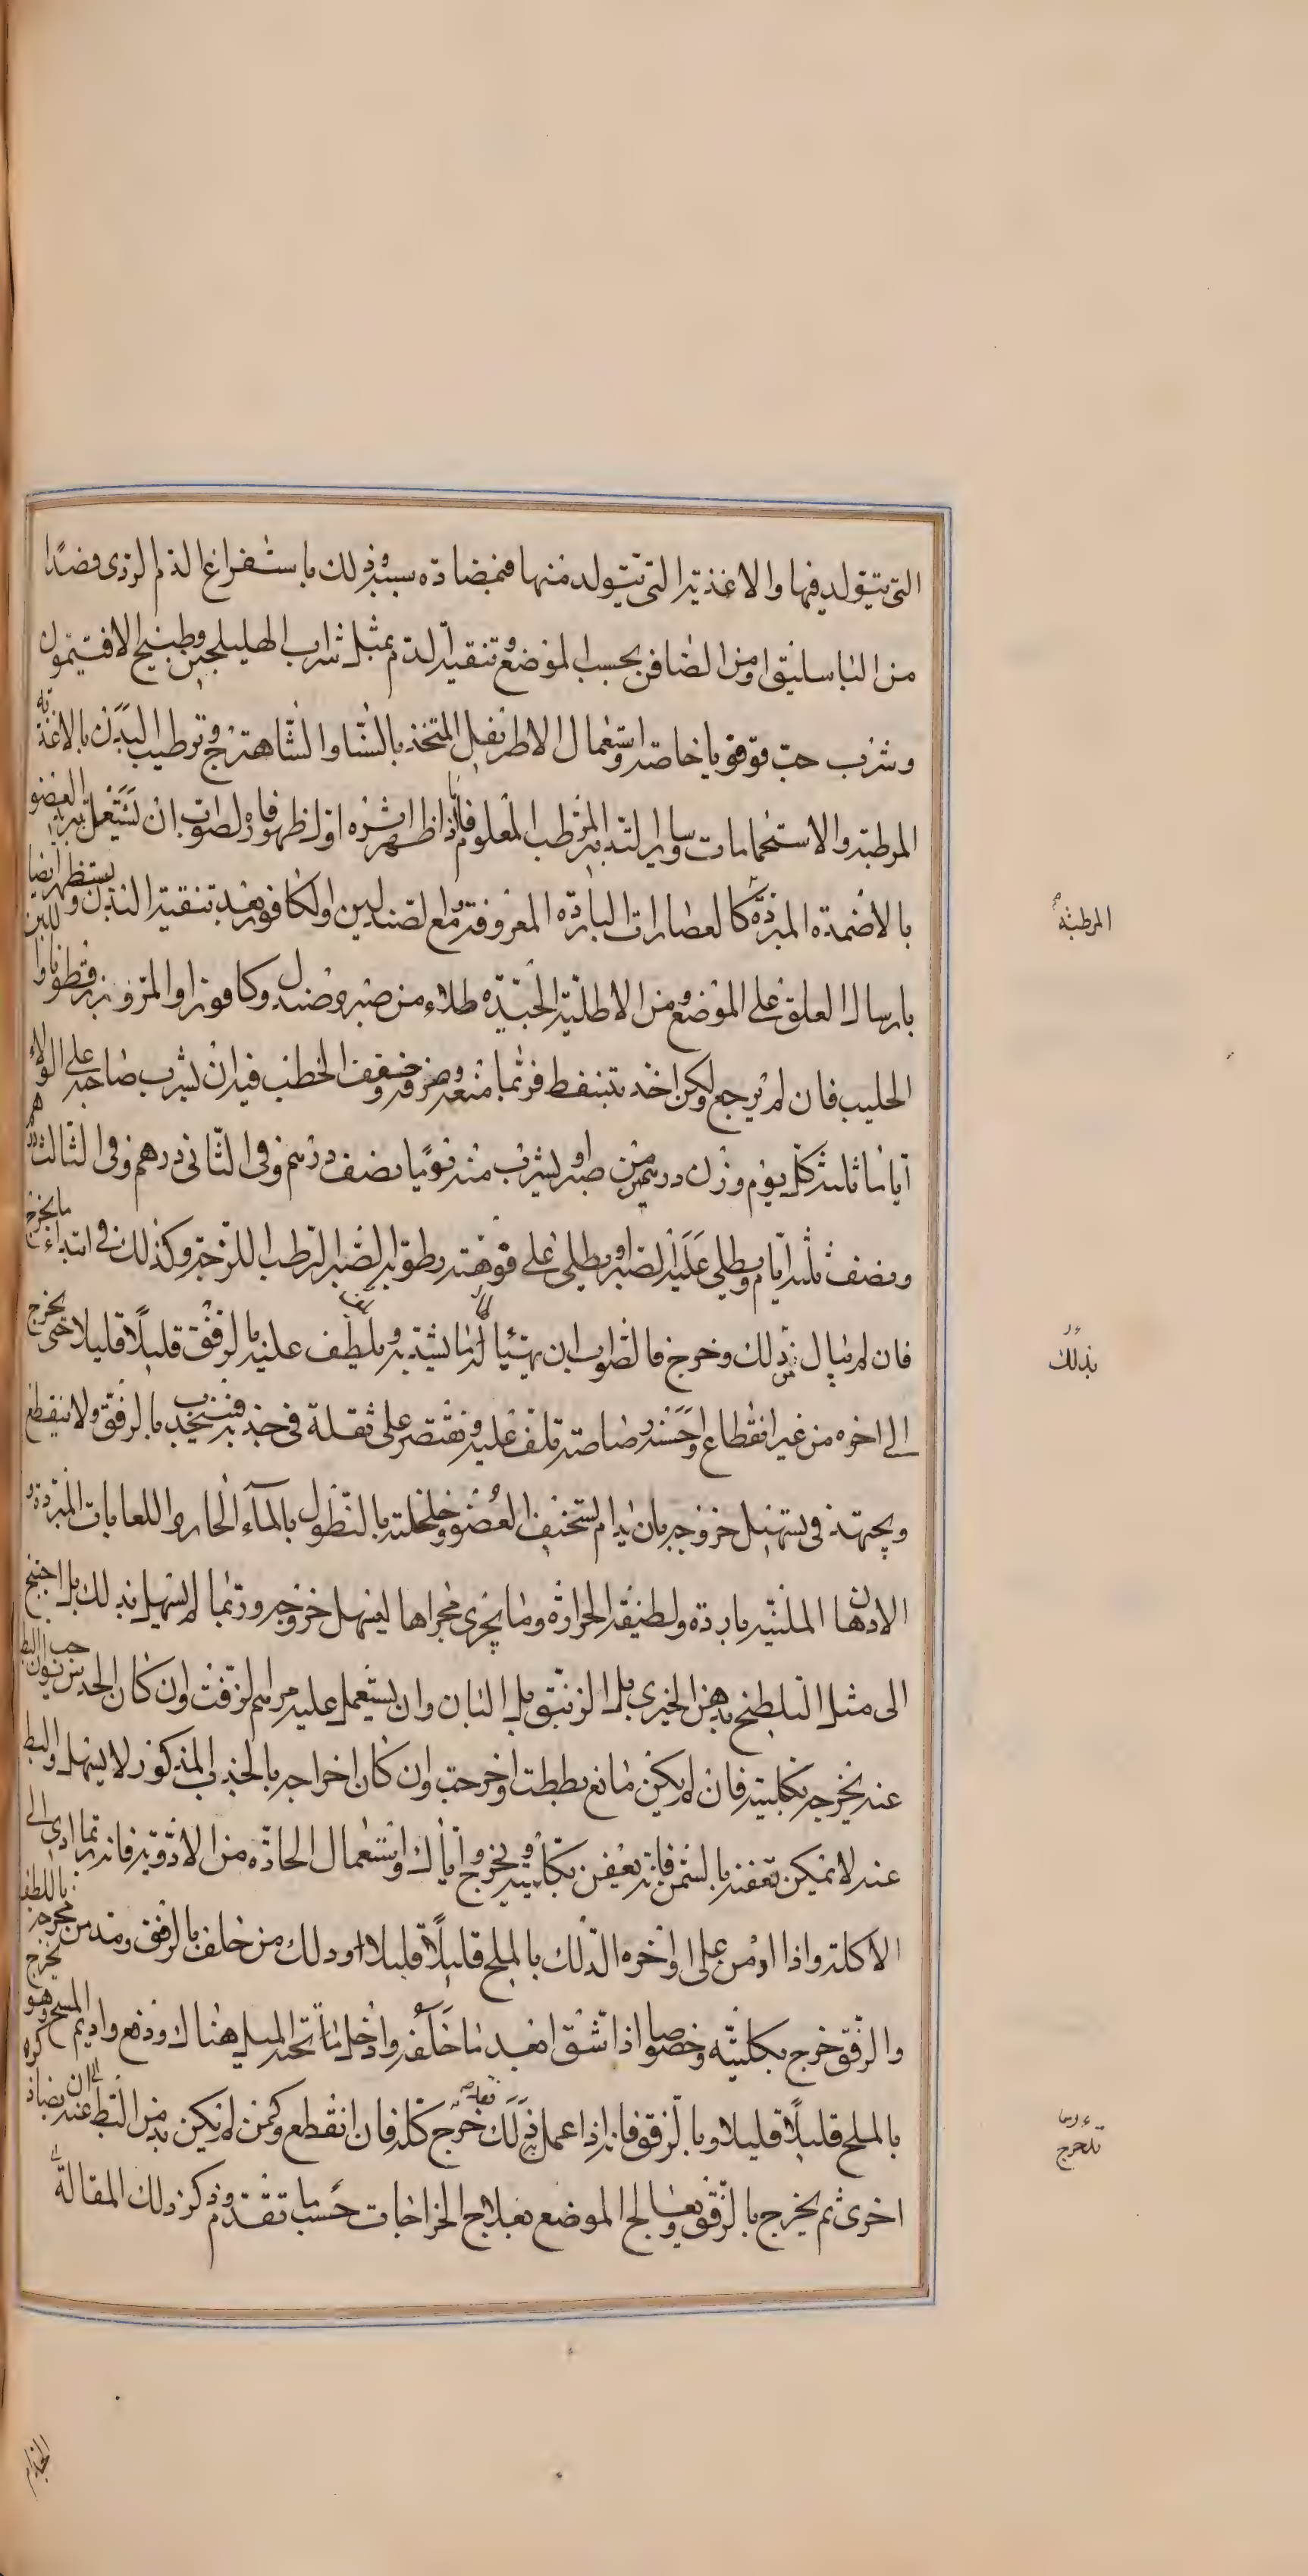 التى يتولد فيها والاغذية التى يتولد منها فبمضادة سببه وذلك باستفراغ الدم الردى فصدًا
من الباسليق او من الصافن بحسب الموضع وتنقية الدم بمثل شراب الهليلجين وطبيخ الافتيمون
وشرب حب قوقويا خاصة واستعمال الاطريفيل المتخذ بالسنا والشاهترج وترطيب البدن بالاغذية
المرطبة والاستحمامات وساير التدابير المرطب المعلوم فاما اذا ظهر اثره اول ظهوره فالصواب ان يستعمل تبريد العضو
بالاضمدة المبردة كالعصارات الباردة المعروفة مع الصندلين او الكافور بعد تنقية البدن ويستظهر ايضا للبدن
بارسال العلق على الموضع ومن الاطلية الجيدة طلاء من صبر وصندل وكافور او المر وبزر قطونا وا
الحليب فان لم يرجع ولكن اخذ يتنفط فربما منعه وصرفه وخفف الخطب فيه ان يشرب صاحبه على الولاء
اياما ثلثة كل يوم وزن درهم من صبر او يشرب منه يوما نصف درهم وفى الثانى درهم وفى الثالث درهم
ونصف ثلثة ايام ويطلى عليه الصبر او يطلى على فوهته رطوبة الصبر الرطب اللزجة وكذلك فى ابتداء ما يخرج
فان لم يبال بذلك وخرج فالصواب ان يهيئا له ما يشد به ويلطف عليه بالرفق قليلًا قليلا حتى يخرج
الى اخره من غير انقطاع واحسنه رصاصة تلف عليه ويقتصر على ثقله فى جذبه فينجذب بالرفق ولا ينقطع
ويجتهد فى تسهيل خروجه بان يدام تسخيف العضو وخلخلته بالنطول بالماء الحار واللعابات المبردة و
الادهان الملينة باردة ولطيفة الحرارة وما يجرى مجراها ليسهل خروجه وربما لم يسهل بذلك بل احتيج
الى مثل التلطيخ بدهن الخيرى بل الزنبق بل البان وان يستعمل عليه مراهم الزفت وان كان الحدس يوجب ان البط
عنه يخرجه بكليته فان لم يكن مانع بططت واخرجت وان كان اخراجه بالجذب المذكور لا يسهل والبط
عنه لا يمكن تعفنه بالسمن فانه يعفن بكليته ويخرج واياك واستعمال الحادة من الادوية فانه ربما ادى الى
الاكلة واذا ادمن على اواخره الدلك بالملح قليلًا قليلا ودلك من خلف بالرفق ومد من مخرجه باللطف
والرفق خرج بكليته وخصوصا اذا شق ابعد ما خلفه وادخل ما تحته الميل هناك ودفع واديم المسح وهو يخرج
بالملح قليلًا قليلا وبالرفق فانه اذا عمل ذلك خرج كله فان انقطع وكمن لم يكن بد من البط عنه
اخرى ثم يخرج بالرفق ويعالج الموضع بعلاج الخراجات حسب ما تقدم ذكر ذلك المقالة
المرطبة
بذلك
الجذام